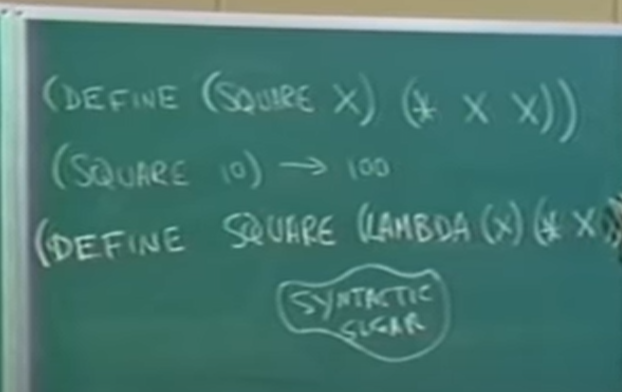 (DEFINE (SQUARE X) (* X X))
(SQUARE 10) → 100
(DEFINE SQUARE (LAMBDA (X) (* X
SYNTACTIC
SUGAR